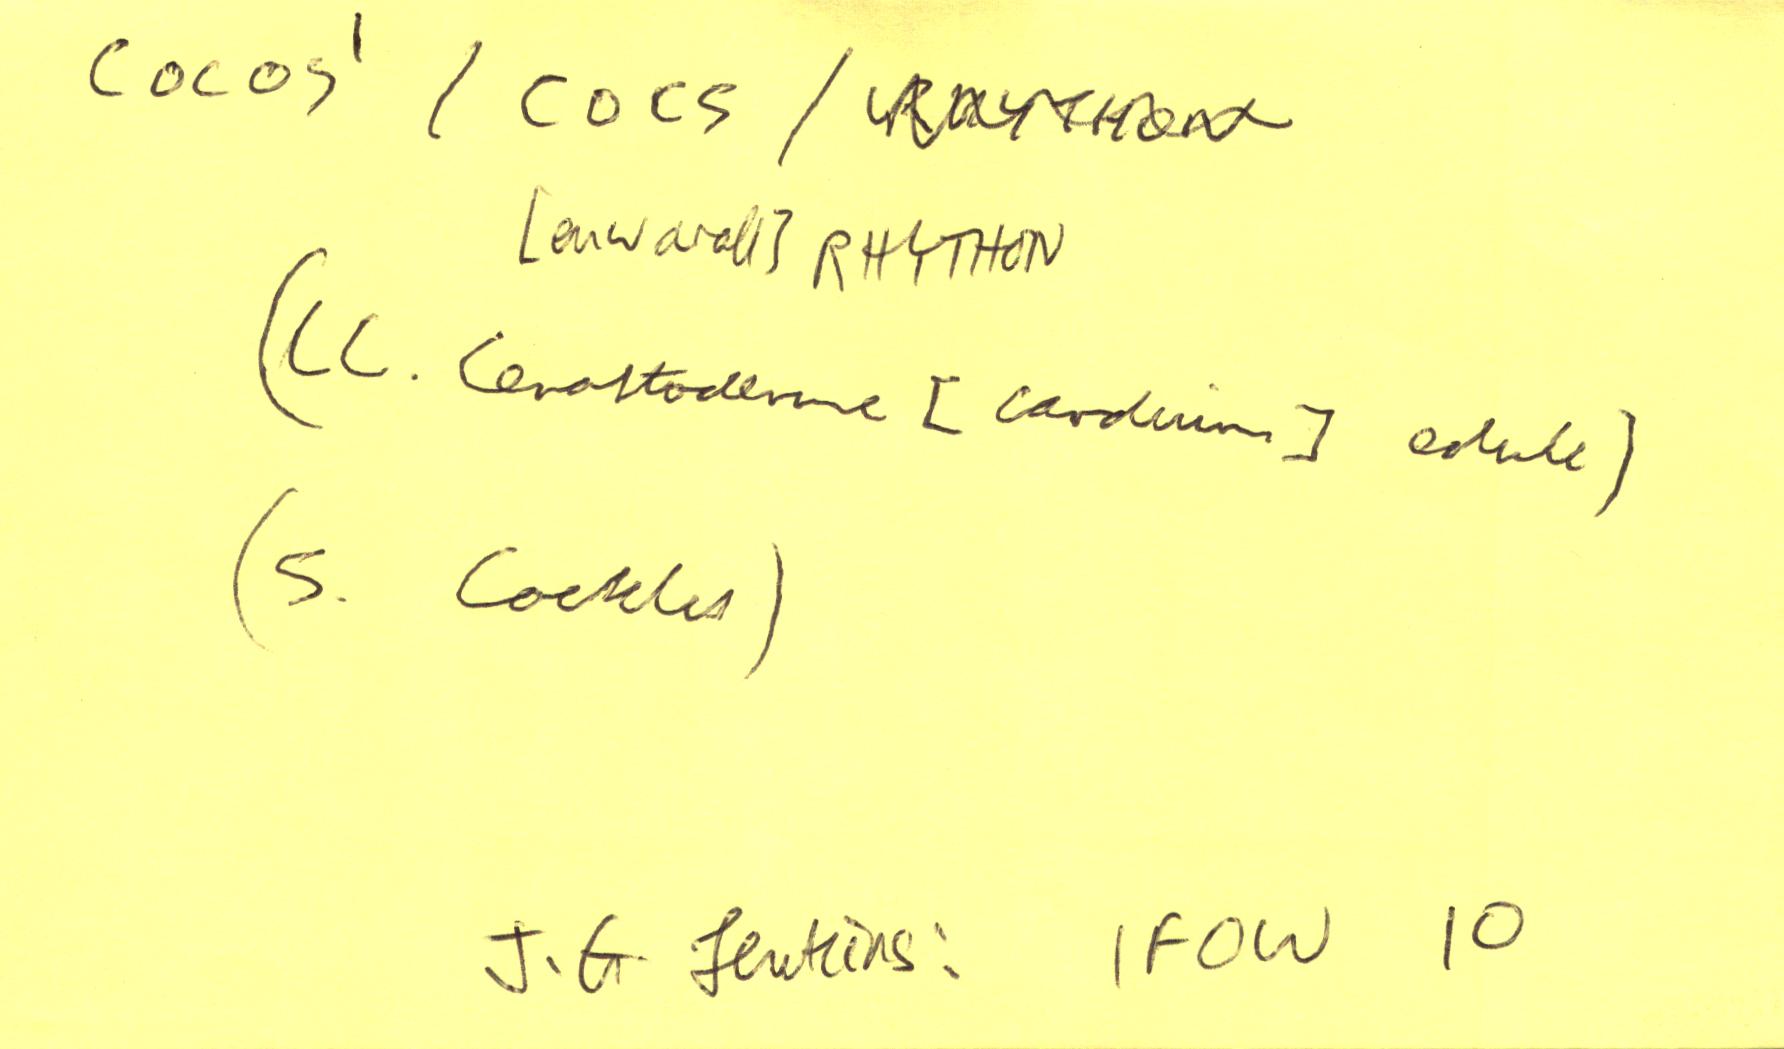 COCOS' / COCS / RHYTHON
[enw arall] RHYTHON
(LL. Cerastoderme [cardium] edule)
(S. Cockles)
J.G. Jenkins: IFOW 10